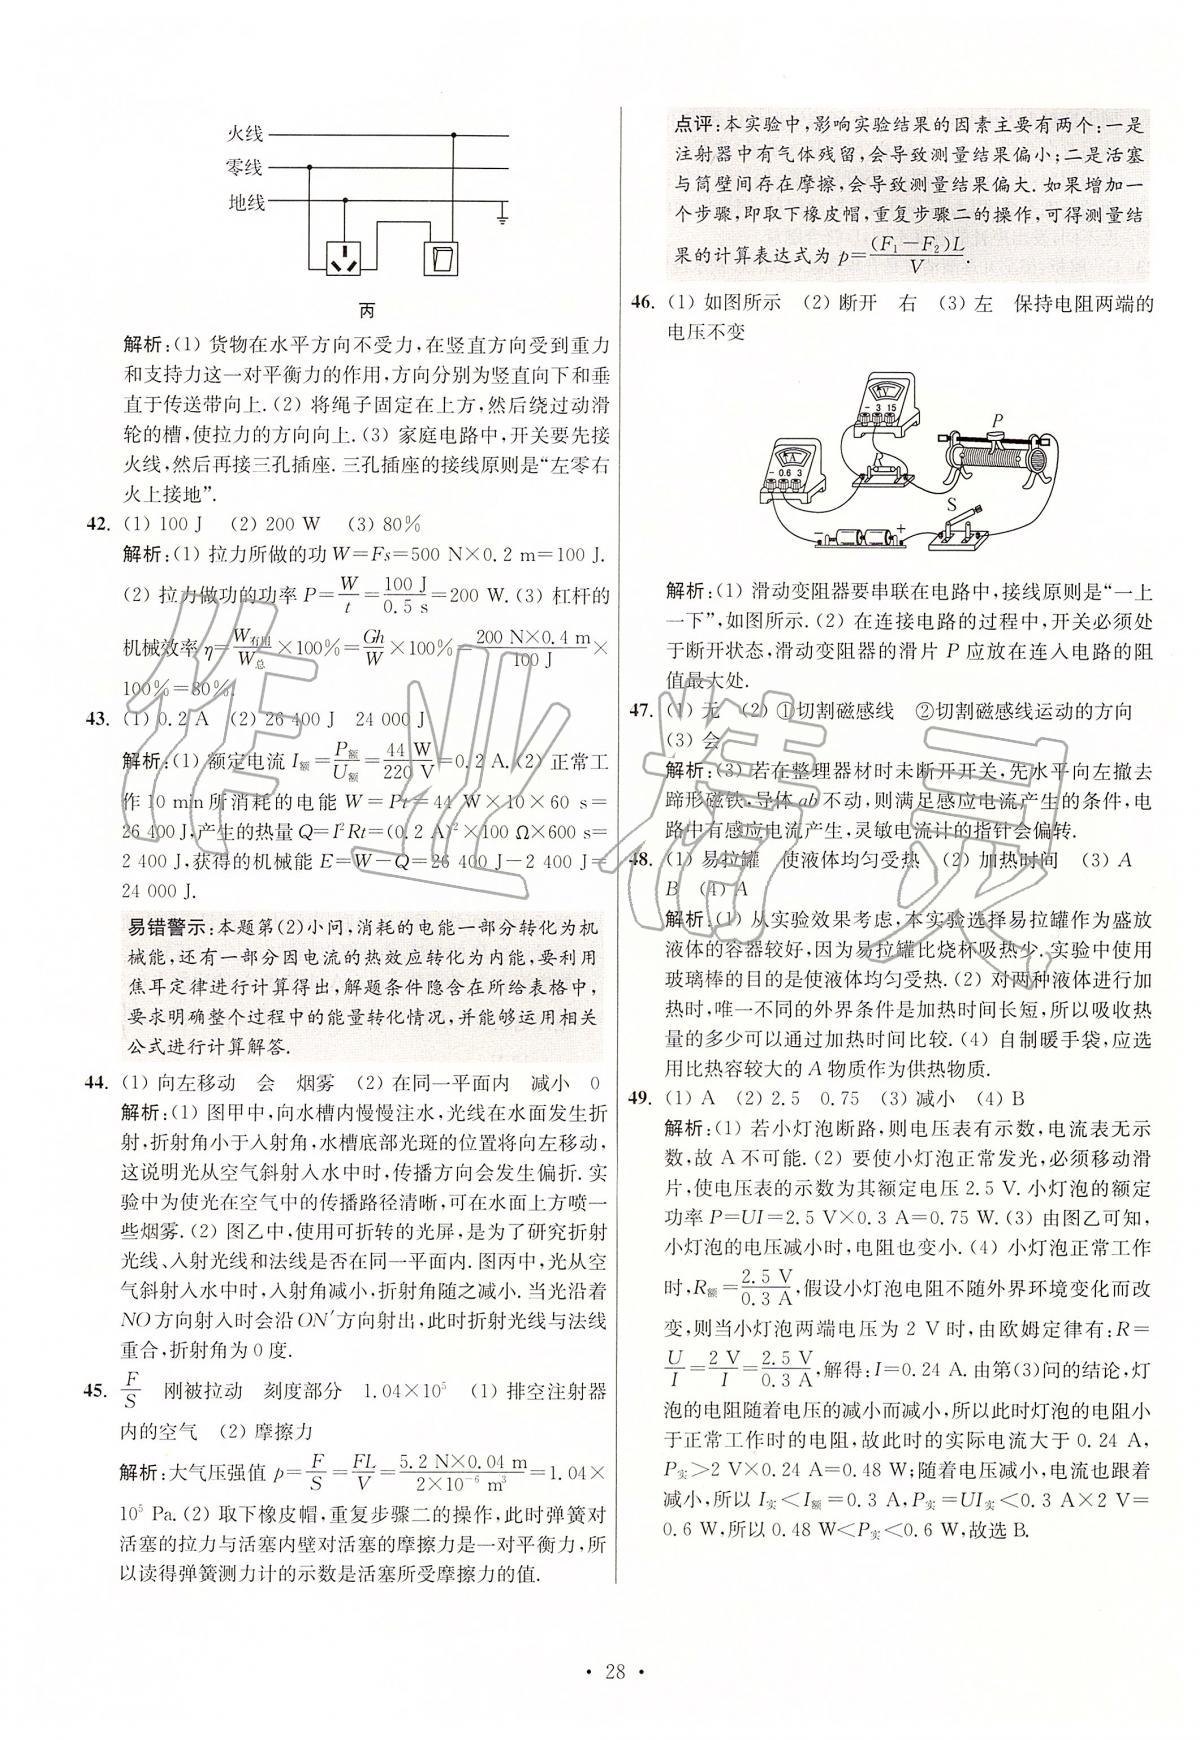 火线
零线
地线
丙
解析:(1) 货物在水平方向不受力,在竖直方向受到重力
和支持力这一对平衡力的作用,方向分别为竖直向下和垂
直于传送带向上.(2) 将绳子固定在上方,然后绕过动滑
轮的槽,使拉力的方向向上.(3) 家庭电路中,开关要先接
火线,然后再接三孔插座.三孔插座的接线原则是“左零右
火上接地”.
42. (1) 100 J (2) 200 W (3) 80%
解析:(1) 拉力所做的功 W=Fs=500 N×0.2 m=100 J.
(2) 拉力做功的功率 P=W/t=100 J/0.5 s=200 W.(3) 杠杆的
机械效率 η=W有用/W总×100%=Gh/W×100%=200 N×0.4 m/100 J×
100%=80%.
43. (1) 0.2 A (2) 26 400 J 24 000 J
解析:(1) 额定电流 I额=P额/U额=44 W/220 V=0.2 A.(2) 正常工
作 10 min 所消耗的电能 W=Pt=44 W×10×60 s=
26 400 J,产生的热量 Q=I²Rt=(0.2 A)²×100 Ω×600 s=
2 400 J,获得的机械能 E=W-Q=26 400 J-2 400 J=
24 000 J.
易错警示:本题第(2)小问,消耗的电能一部分转化为机
械能,还有一部分因电流的热效应转化为内能,要利用
焦耳定律进行计算得出,解题条件隐含在所给表格中,
要求明确整个过程中的能量转化情况,并能够运用相关
公式进行计算解答.
44. (1) 向左移动 会 烟雾 (2) 在同一平面内 减小 0
解析:(1) 图甲中,向水槽内慢慢注水,光线在水面发生折
射,折射角小于入射角,水槽底部光斑的位置将向左移动,
这说明光从空气斜射入水中时,传播方向会发生偏折.实
验中为使光在空气中的传播路径清晰,可在水面上方喷一
些烟雾.(2) 图乙中,使用可折转的光屏,是为了研究折射
光线、入射光线和法线是否在同一平面内.图丙中,光从空
气斜射入水中时,入射角减小,折射角随之减小.当光沿着
NO方向射入时会沿ON′方向射出,此时折射光线与法线
重合,折射角为 0 度.
45. F/S 刚被拉动 刻度部分 1.04×10⁵ (1) 排空注射器
内的空气 (2) 摩擦力
解析:大气压强值 p=F/S=FL/V=5.2 N×0.04 m/2×10⁻⁶ m³=1.04×
10⁵ Pa.(2) 取下橡皮帽,重复步骤二的操作,此时弹簧对
活塞的拉力与活塞内壁对活塞的摩擦力是一对平衡力,所
以读得弹簧测力计的示数是活塞所受摩擦力的值.
点评:本实验中,影响实验结果的因素主要有两个:一是
注射器中有气体残留,会导致测量结果偏小;二是活塞
与筒壁间存在摩擦,会导致测量结果偏大.如果增加一
个步骤,即取下橡皮帽,重复步骤二的操作,可得测量结
果的计算表达式为 p=(F₁-F₂)L/V.
46. (1) 如图所示 (2) 断开 右 (3) 左 保持电阻两端的
电压不变
V
- 3 15
A
- 0.6 3
P
S
- +
解析:(1) 滑动变阻器要串联在电路中,接线原则是“一上
一下”,如图所示.(2) 在连接电路的过程中,开关必须处
于断开状态,滑动变阻器的滑片 P 应放在连入电路的阻
值最大处.
47. (1) 无 (2) ①切割磁感线 ②切割磁感线运动的方向
(3) 会
解析:(3) 若在整理器材时未断开开关,先水平向左撤去
蹄形磁铁,导体 ab 不动,则满足感应电流产生的条件,电
路中有感应电流产生,灵敏电流计的指针会偏转.
48. (1) 易拉罐 使液体均匀受热 (2) 加热时间 (3) A
B (4) A
解析:(1) 从实验效果考虑,本实验选择易拉罐作为盛放
液体的容器较好,因为易拉罐比烧杯吸热少.实验中使用
玻璃棒的目的是使液体均匀受热.(2) 对两种液体进行加
热时,唯一不同的外界条件是加热时间长短,所以吸收热
量的多少可以通过加热时间比较.(4) 自制暖手袋,应选
用比热容较大的 A 物质作为供热物质.
49. (1) A (2) 2.5 0.75 (3) 减小 (4) B
解析:(1) 若小灯泡断路,则电压表有示数,电流表无示
数,故 A 不可能.(2) 要使小灯泡正常发光,必须移动滑
片,使电压表的示数为其额定电压 2.5 V.小灯泡的额定
功率 P=UI=2.5 V×0.3 A=0.75 W.(3) 由图乙可知,
小灯泡的电压减小时,电阻也变小.(4) 小灯泡正常工作
时,R额=2.5 V/0.3 A,假设小灯泡电阻不随外界环境变化而改
变,则当小灯泡两端电压为 2 V 时,由欧姆定律有:R=
U/I=2 V/I=2.5 V/0.3 A,解得:I=0.24 A.由第(3)问的结论,灯
泡的电阻随着电压的减小而减小,所以此时灯泡的电阻小
于正常工作时的电阻,故此时的实际电流大于 0.24 A,
P实>2 V×0.24 A=0.48 W;随着电压减小,电流也跟着
减小,所以 I实<I额=0.3 A,P实=UI实<0.3 A×2 V=
0.6 W,所以 0.48 W<P实<0.6 W,故选 B.
作业精灵
· 28 ·